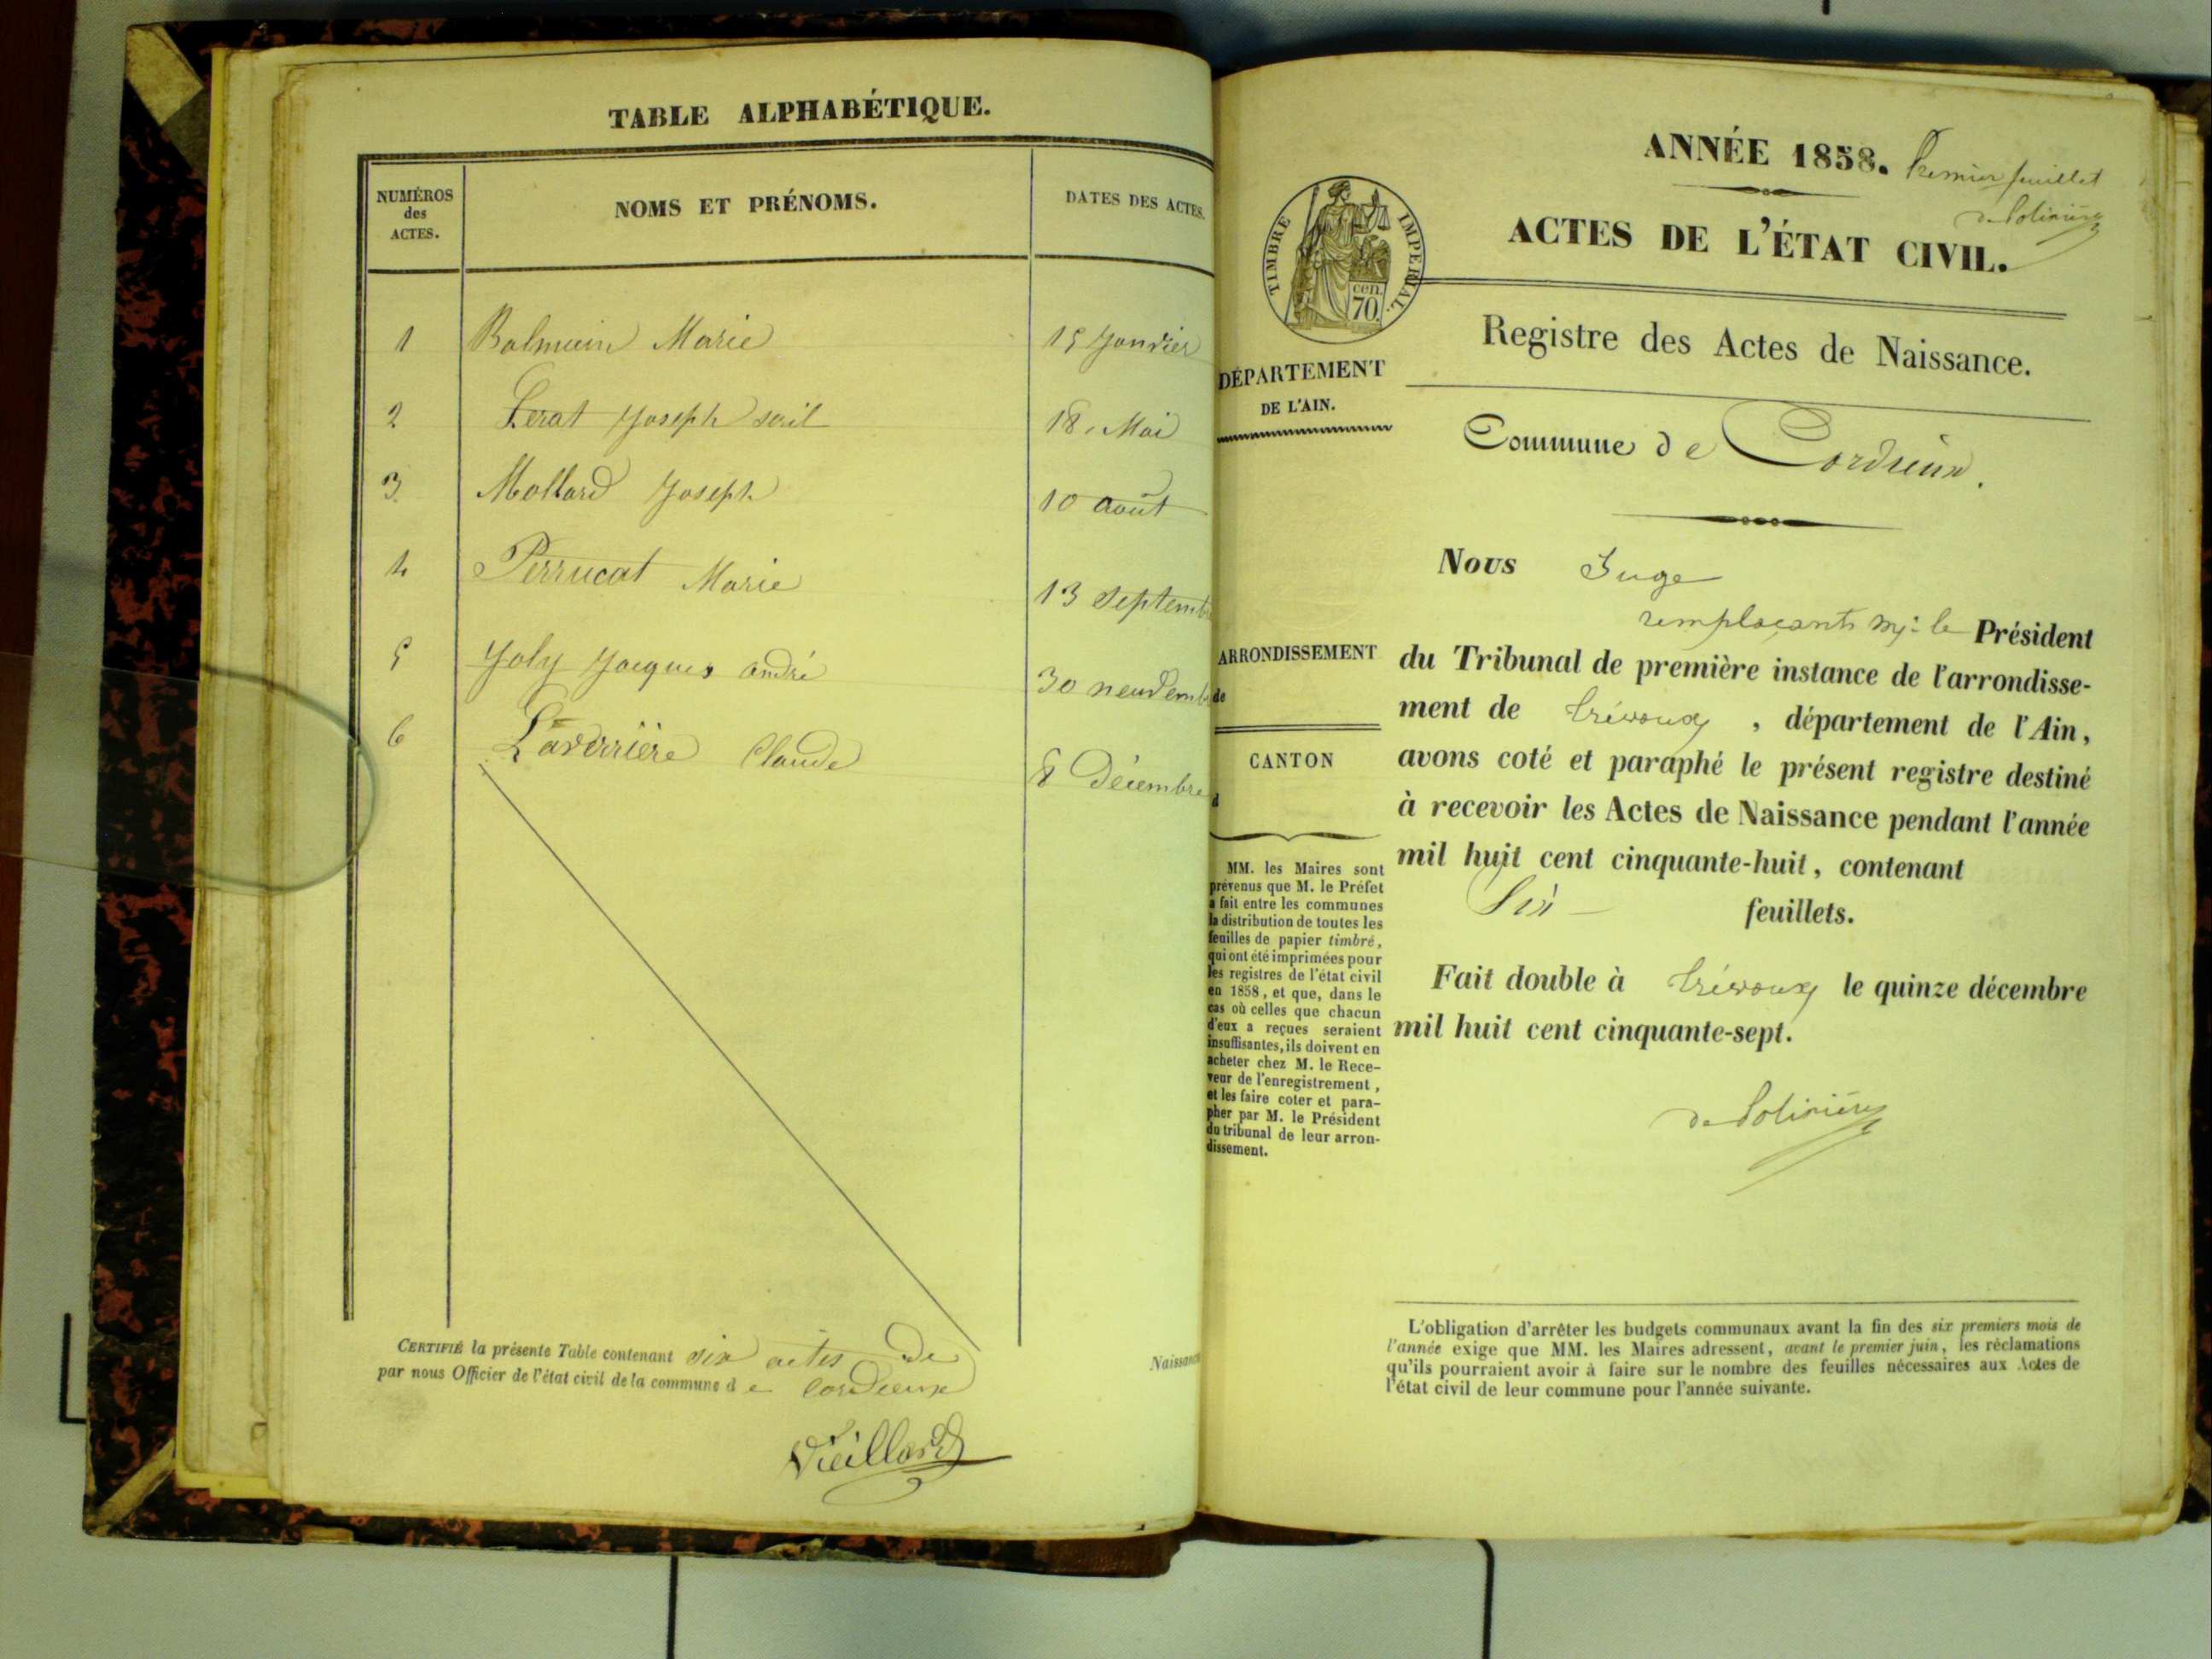 TABLE ALPHABÉTIQUE.
NUMÉROS
des
ACTES.
NOMS ET PRÉNOMS.
DATES DES ACTES.
1 Balmain Marie 15 Janvier
2 Joseph 18. Mai
3. Mollard Joseph 10 août
4 Perrucat Marie 13 Septemb
5 Joly Jacques andré 30
6 Laverrière Claude 8 Décembre
CERTIFIÉ la présente Table contenant six actes De
par nous Officier de l'état civil de la commune de Cordieux
Naissance
Vieillard
ANNÉE 1858. Premier feuillet
de Poliniére
ACTES DE L'ÉTAT CIVIL.
TIMBRE IMPERIAL.
cen.
70.
Registre des Actes de Naissance.
DÉPARTEMENT
DE L'AIN.
Commune de Cordieux.
Nous Juge
remplaçant Mr. le Président
ARRONDISSEMENT
de
CANTON
d
du Tribunal de première instance de l'arrondisse-
ment de Trévoux, département de l'Ain,
avons coté et paraphé le présent registre destiné
à recevoir les Actes de Naissance pendant l'année
mil huit cent cinquante-huit, contenant
Six feuillets.
Fait double à Trévoux le quinze décembre
mil huit cent cinquante-sept.
de Poliniére
MM. les Maires sont
prévenus que M. le Préfet
a fait entre les communes
la distribution de toutes les
feuilles de papier timbré,
qui ont été imprimées pour
les registres de l'état civil
en 1858, et que, dans le
cas où celles que chacun
d'eux a reçues seraient
insuffisantes, ils doivent en
acheter chez M. le Rece-
veur de l'enregistrement,
et les faire coter et para-
pher par M. le Président
du tribunal de leur arron-
dissement.
L'obligation d'arrêter les budgets communaux avant la fin des six premiers mois de
l'année exige que MM. les Maires adressent, avant le premier juin, les réclamations
qu'ils pourraient avoir à faire sur le nombre des feuilles nécessaires aux Actes de
l'état civil de leur commune pour l'année suivante.